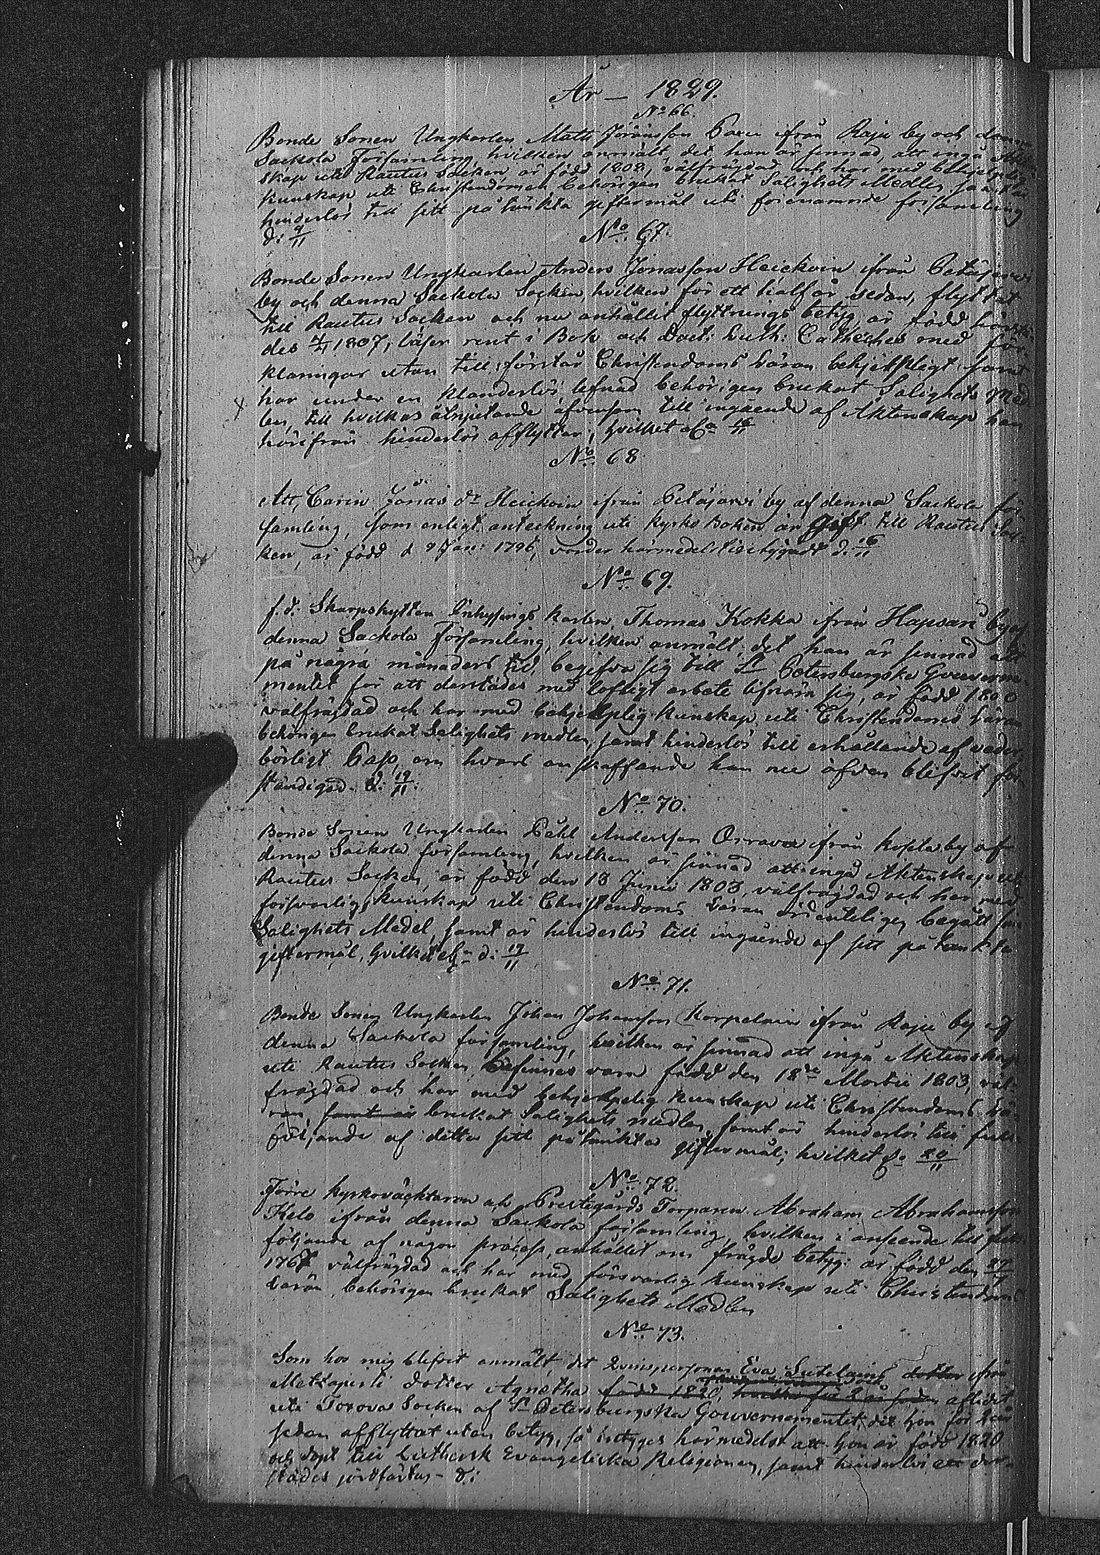 År – 1829.
No 66.
Bonde Sonen Ungkarlen Matts Jöransson ifrån Raju by och denna
Sackola Församling, hvilken anmält, det han är sinnad, att ingå Äkten-
skap uti Rautus Socken, är född 1808, välfrägdad och har med behjelpelig
kunskap uti Christendomen behörigen brukat Salighets Medlen, samt är
hinderlös till sitt påtänkta giftermål uti förenämnde församling
d: 9/11
No 67.
Bonde Sonen Ungkarlen Anders Jonasson Heickoin ifrån Petäjärvi
by och denna Sackola Socken, hvilken för ett halft år sedan, flyttat
till Rautus Socken och nu anhållit flyttnings betyg, är född
des 1807, läser rent i Bok och Doct: Luth: Catheches med för-
klaringar utan till, förstår Christendoms Läran behjelpligt, samt
har under en klanderlös lefnad behörigen brukat Salighets Med-
len, till hvilkas åtnjutande äfvensom till ingående af Äktenskap han
härifrån hinderlös afflyttar, hvilket
No 68
Att, Carin Jonas dr Heickoin ifrån Petäjärvi by af denna Sackola för-
samling, som enligt anteckning uti Kyrko Boken är gift till Rautus Soc-
ken, är född d 9 Jan: 1796, varder härmedelst d: 16/11
No 69.
f.d. Skarpskytten Inhysings karlen, Thomas Kokka ifrån Hapsari by
denna Sackola Församling, hvilken anmält, det han är sinnad att
på några månaders tid, begifva sig till St Petersburgska Gouverne-
mentet för att derstädes med lofligt arbete lifnära sig, är född 1800
välfrägdad och har med behjelpelig kunskap uti Christendoms Läran
behörigen brukat Salighets medlen, samt hinderlös till erhållande af veder-
börligt Pass, om hvars anskaffande han nu äfven blifvit för-
ständigad. d: 19/11.
No 70.
Bonde Sonen Ungkarlen Påhl Andersson Orava ifrån Kopla by af
denna Sackola församling, hvilken är sinnad att ingå Äktenskap uti
Rautus Socken, är född den 18 Junii 1803, välfrägdad och har med
försvarlig kunskap uti Christendoms Läran ordenteligen begått
Salighets Medel, samt är hinderlös till ingående af sitt påtänkta
giftermål, hvilket d: 17/11
No 71.
Bonde Sonen Ungkarlen Johan Johansson Korpelain ifrån Raju by af
denna Sackola församling, hvilken är sinnad att ingå Äktenskap
uti Rautus Socken, befinnes vara född den 18de Martii 1803, väl-
frägdad och har med behjelpelig kunskap uti Christendoms Lä-
ran, samt är brukat Salighets medlen, samt är hinderlös till full-
följande af detta sitt påtänkta giftermål; hvilket d: 20/11
No 72.
Förre Kyrkoväcktaren och Prestegårds Torparen Abraham Abrahamsson
Kelo ifrån denna Sackola församling, hvilken i anseende till full-
följande af någon process, anhållit om frägde betyg: är född den
1767 välfrägdad och har med försvarlig kunskap uti Christendoms
Läran, behörigen brukat Salighets Medlen
No 73.
Som hos mig blifvit anmält, det Qvinspersonen Eva Sutelains dotter ifrån
dotter Agnetha född 1820, aflidit
uti Toxova Socken af St Petersburgska Gouvernementet, dit hon för
sedan afflyttat utan betyg, så intygas härmedelst att hon är född 1820
och döpt till Luthersk Evangeliska Religionen, samt hinderlös att der-
städes jordfästas – d: